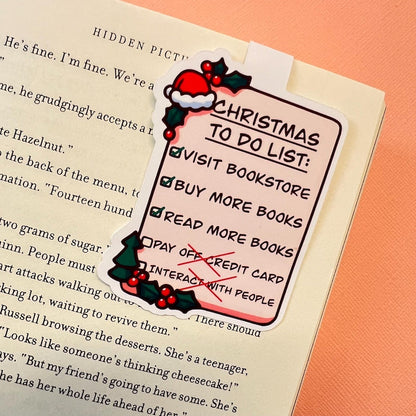 HIDDEN PICT
He's fine. I'm fine. We're a
me, he grudgingly accepts a
te Hazelnut."
the back of the menu, to
mation. "Fourteen hund
two grams of sugar."
inn. People must
art attacks walking out
king lot, waiting to revive them." There should
Russell browsing the desserts. She's a teenager,
"Looks like someone's thinking cheesecake!"
ays. "But my friend's going to have some. She's
she has her whole life ahead of her."
CHRISTMAS
TO DO LIST:
VISIT BOOKSTORE
BUY MORE BOOKS
READ MORE BOOKS
PAY OFF CREDIT CARD
INTERACT WITH PEOPLE